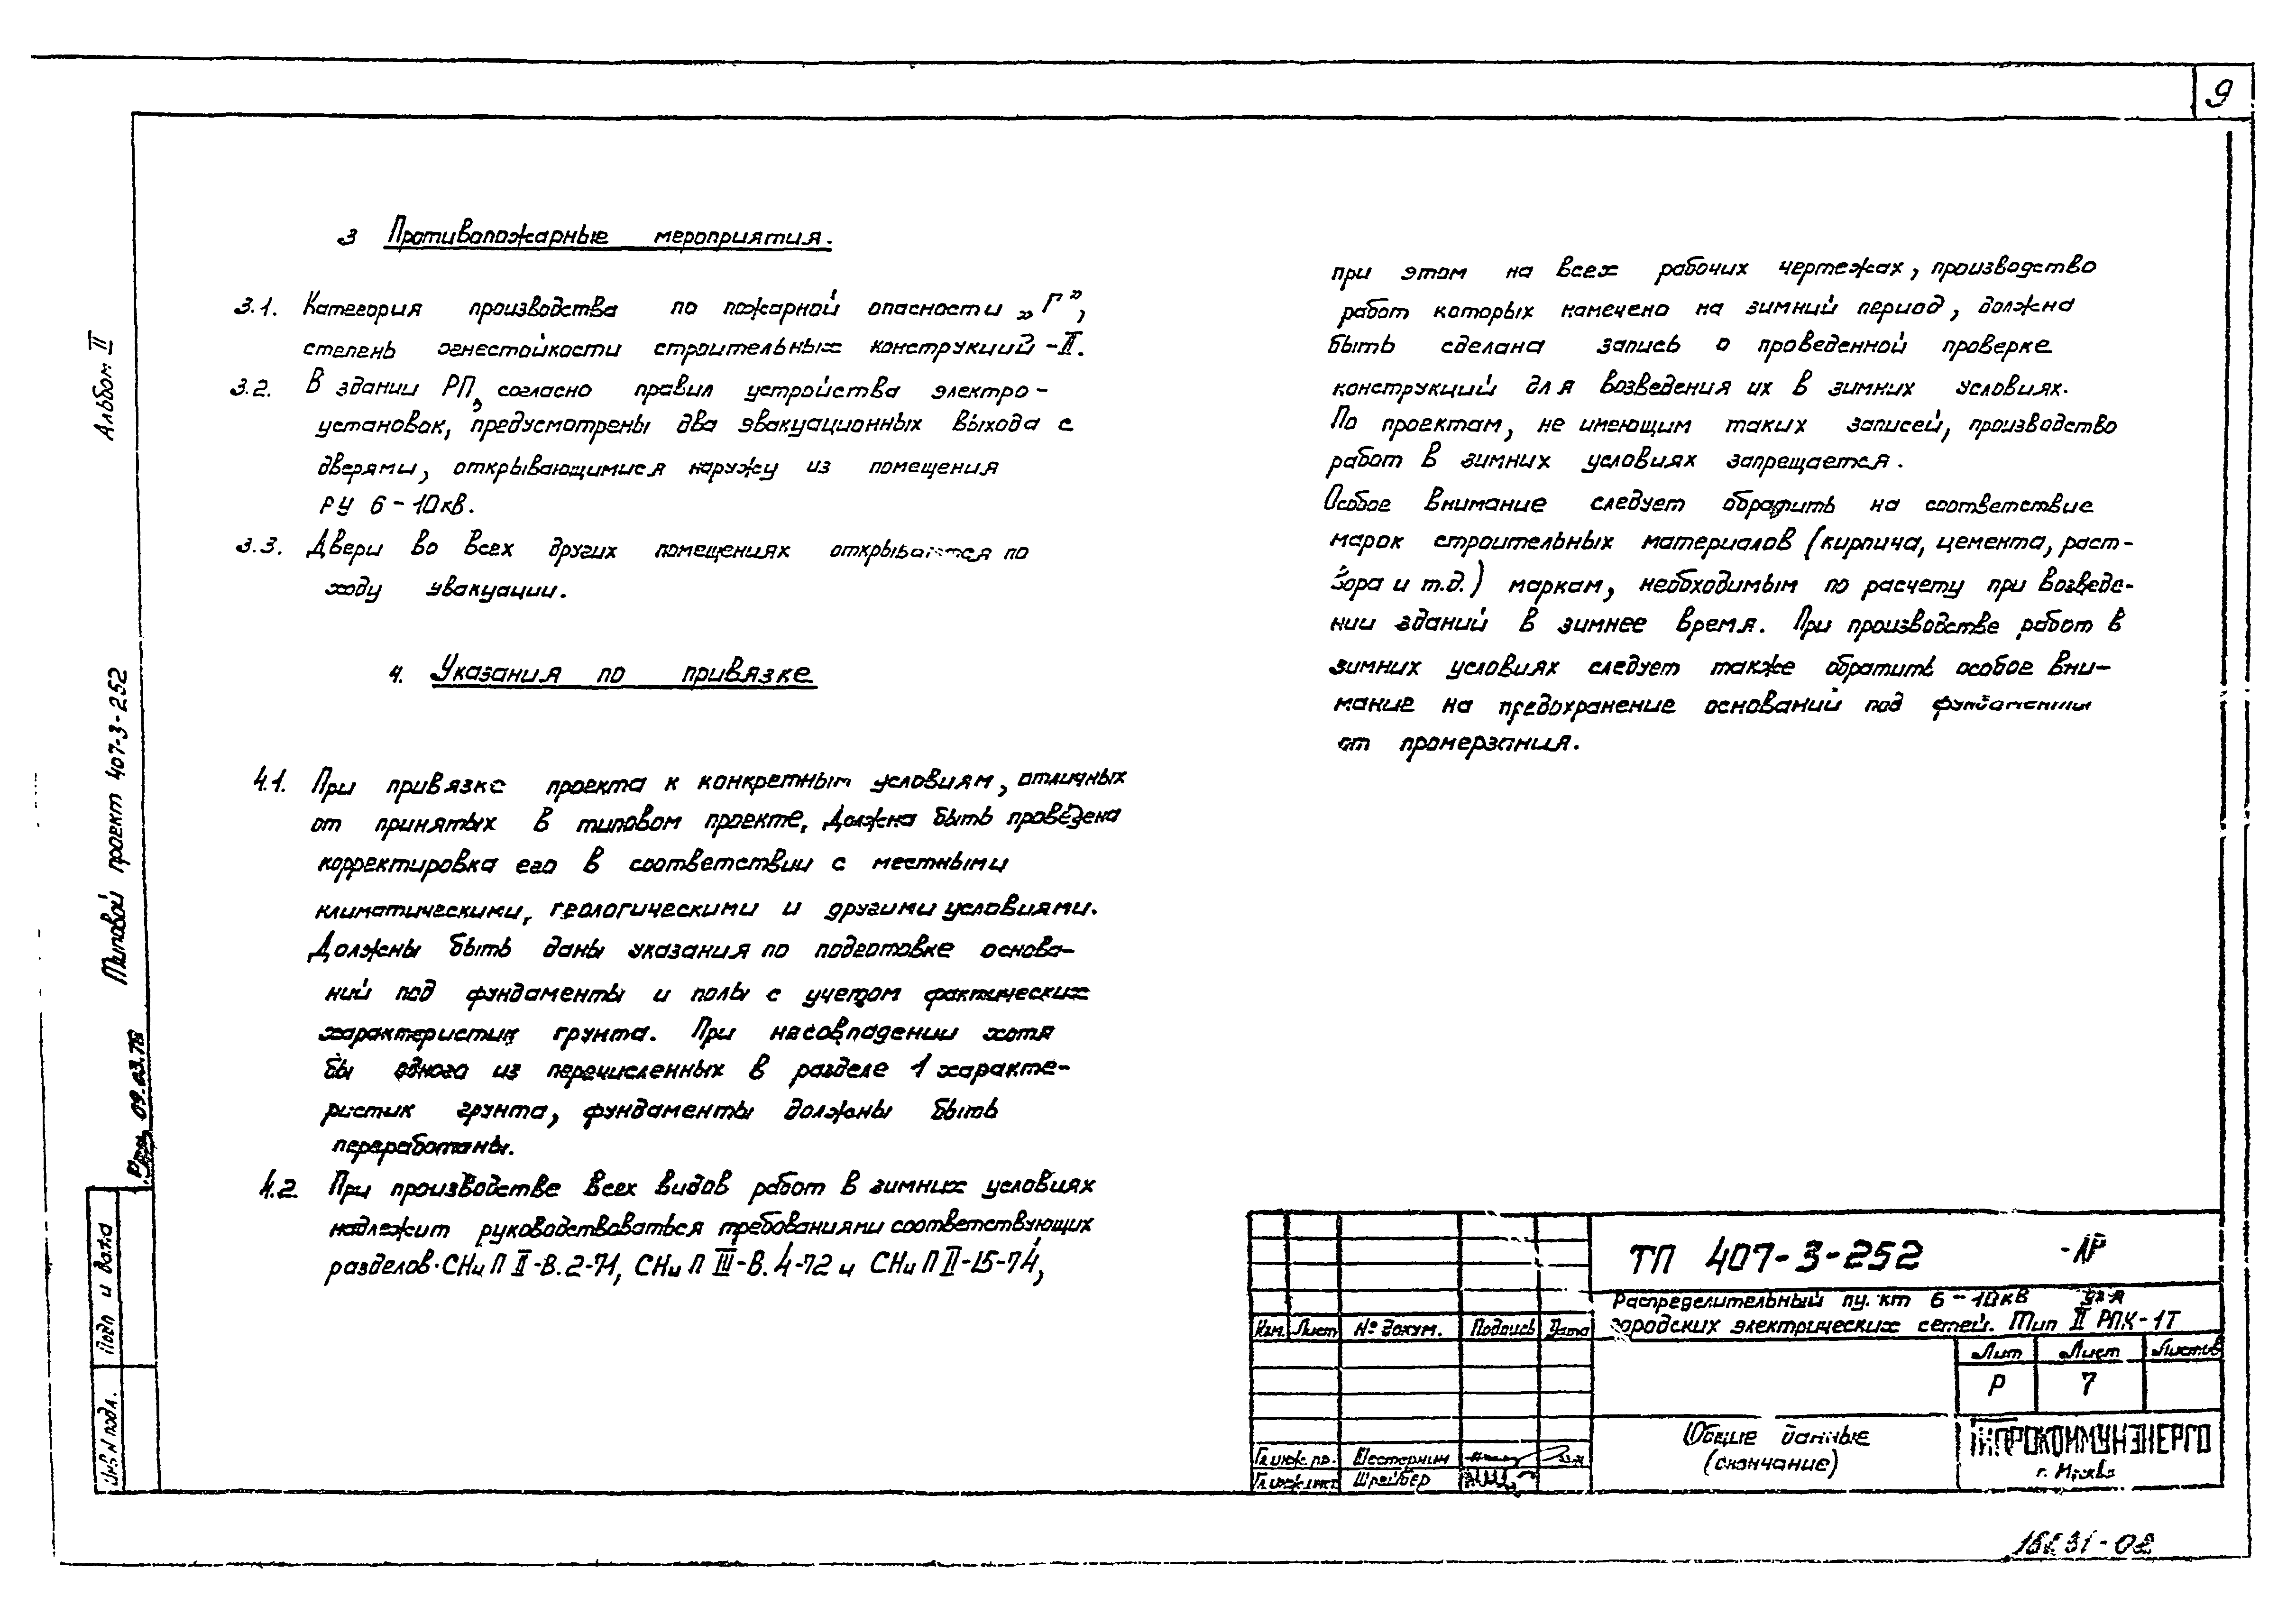 9
Альбом II
Типовой проект 407-3-252
09.03.78
Подп и дата
Инв N подл.
3 Противопожарные мероприятия.
3.1. Категория производства по пожарной опасности „Г”,
степень огнестойкости строительных конструкций - II.
3.2. В здании РП, согласно правил устройства электро-
установок, предусмотрены два эвакуационных выхода с
дверями, открывающимися наружу из помещения
РУ 6-10кВ.
3.3. Двери во всех других помещениях открываются по
ходу эвакуации.
4. Указания по привязке
4.1. При привязке проекта к конкретным условиям, отличных
от принятых в типовом проекте, должна быть проведена
корректировка его в соответствии с местными
климатическими, геологическими и другими условиями.
Должны быть даны указания по подготовке основа-
ний под фундаменты и полы с учетом фактических
характеристик грунта. При несовпадении хотя
бы одного из перечисленных в разделе 1 характе-
ристик грунта, фундаменты должны быть
переработаны.
4.2. При производстве всех видов работ в зимних условиях
надлежит руководствоваться требованиями соответствующих
разделов СНиП II-В.2-71, СНиП III-В.4-72 и СНиП II-15-74,
при этом на всех рабочих чертежах, производство
работ которых намечено на зимний период, должна
быть сделана запись о проведенной проверке
конструкций для возведения их в зимних условиях.
По проектам, не имеющим таких записей, производство
работ в зимних условиях запрещается.
Особое внимание следует обратить на соответствие
марок строительных материалов (кирпича, цемента, раст-
вора и т.д.) маркам, необходимым по расчету при возведе-
нии зданий в зимнее время. При производстве работ в
зимних условиях следует также обратить особое вни-
мание на предохранение оснований под фундаменты
от промерзания.
ТП 407-3-252 -АР
Распределительный пункт 6-10кВ для
городских электрических сетей. Тип II РПК-1Т
Изм. Лист № докум. Подпись Дата
Лит Лист Листов
Р 7
Гл.инж.пр. Шестернин
Шрейбер
Общие данные
(окончание)
ГИПРОКОММУНЭНЕРГО
г. Москва